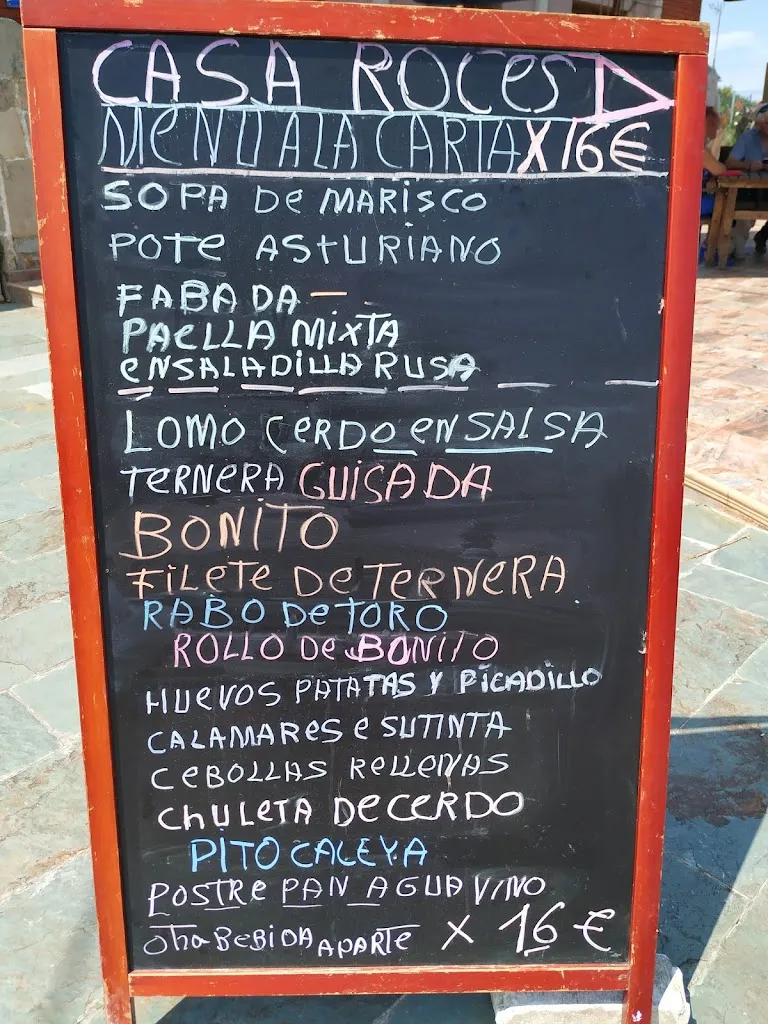 CASA ROCES
MENU A LA CARTA X 16€
SOPA DE MARISCO
POTE ASTURIANO
FABADA
PAELLA MIXTA
ENSALADILLA RUSA
LOMO CERDO EN SALSA
TERNERA GUISADA
BONITO
FILETE DE TERNERA
RABO DE TORO
ROLLO DE BONITO
HUEVOS PATATAS Y PICADILLO
CALAMARES E SUTINTA
CEBOLLAS RELLENAS
CHULETA DE CERDO
PITO CALEYA
POSTRE PAN AGUA VINO
OTRA BEBIDA APARTE X 16 €